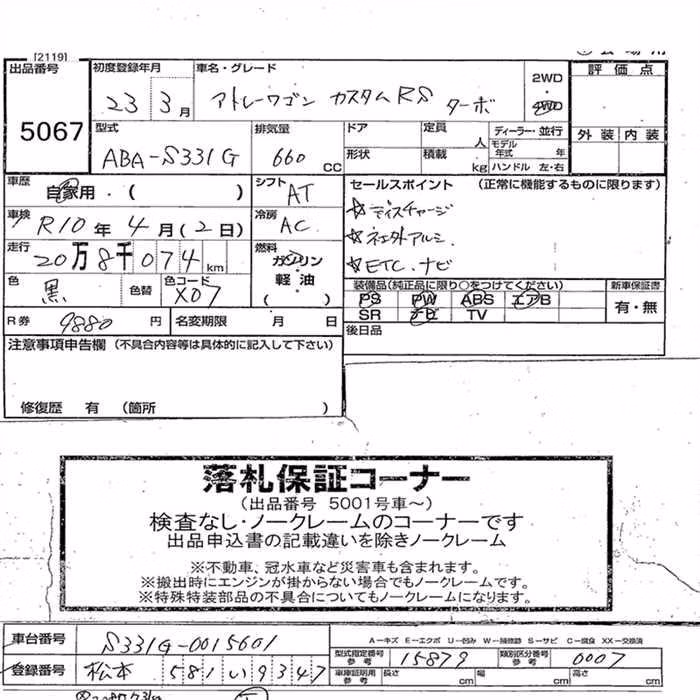 [2119]
出品番号
5067
初度登録年月 車名・グレード
23 3月 アトレーワゴン カスタムRS ターボ
2WD
・
4WD
評価点
外装 内装
型式 排気量 ドア 定員 人 ディーラー・並行
ABA-S331G 660 cc
形状 積載 kg モデル年式 年
ハンドル 左・右
車歴 自家用・( )
シフト AT
セールスポイント (正常に機能するものに限ります)
車検 R10年 4月(2日)
冷房 AC
☆ディスチャージ
☆社外アルミ.
☆ETC.ナビ
走行 20万8千074km
燃料 ガソリン
軽油
( )
色 黒 色替 色コード X07
装備品(純正品に限り○をつけてください) 新車保証書
PS PW ABS エアB
SR ナビ TV
有・無
R券 9880円 名変期限 月 日
後日品
注意事項申告欄 (不具合内容等は具体的に記入して下さい)
修復歴 有 (箇所 )
落札保証コーナー
(出品番号 5001号車~)
検査なし・ノークレームのコーナーです
出品申込書の記載違いを除きノークレーム
※不動車、冠水車など災害車も含まれます。
※搬出時にエンジンが掛からない場合でもノークレームです。
※特殊特装部品の不具合についてもノークレームになります。
車台番号 S331G-0015601
A-キズ E-エクボ U-凹み W-補修跡 S-サビ C-腐食 XX-交換済
型式指定番号 参考 15879 類別区分番号 参考 0007
登録番号 松本 581 い 9347
車庫証明用 参考 長さ cm 幅 cm 高さ cm